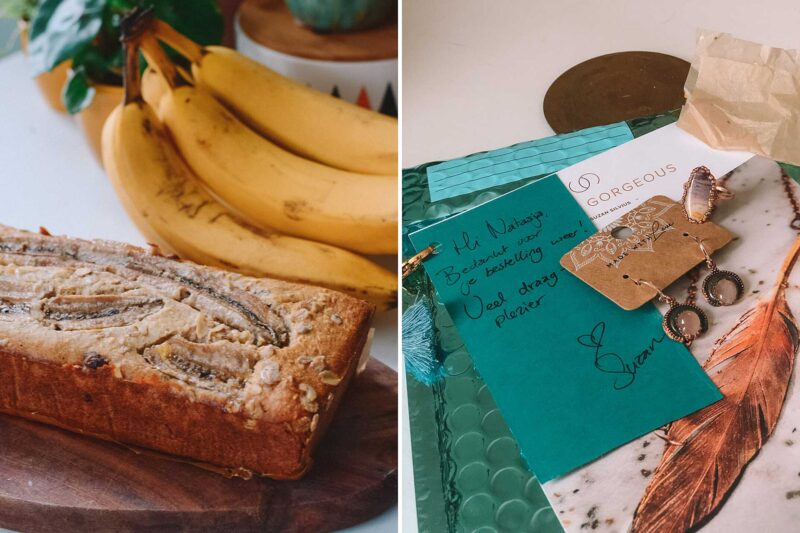 GORGEOUS
SUZAN SILVIUS
MADE WITH Love
Hi Natasja,
Bedankt voor
je bestelling weer!
Veel draag-
plezier
Suzan